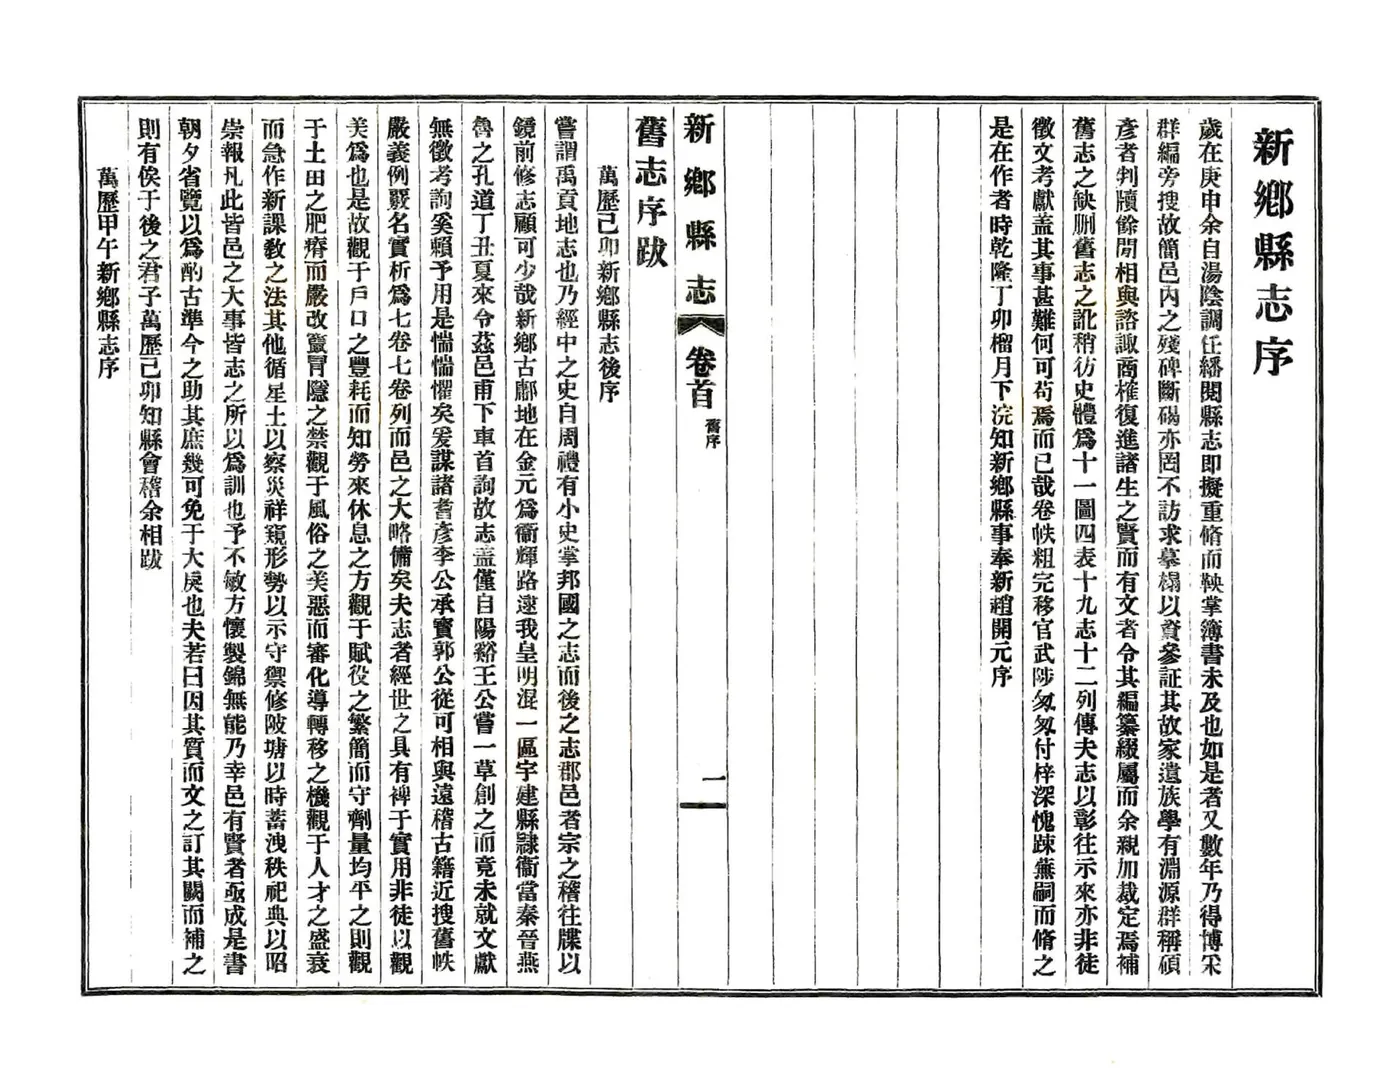 新鄉縣志序
歲在庚申余自湯陰調任繙閱縣志即擬重脩而鞅掌簿書未及也如是者又數年乃得博采
群編旁搜故簡邑內之殘碑斷碣亦罔不訪求摹榻以資參証其故家遺族學有淵源群稱碩
彥者判牘餘閒相與諮諏商榷復進諸生之賢而有文者令其編纂綴屬而余親加裁定焉補
舊志之缺刪舊志之訛稍彷史體爲十一圖四表十九志十二列傳夫志以彰往示來亦非徒
徵文考獻盖其事甚難何可苟焉而已哉卷帙粗完移官武陟匆匆付梓深愧踈蕪嗣而脩之
是在作者時乾隆丁卯榴月下浣知新鄉縣事奉新趙開元序
新鄉縣志 卷首 舊序 一
舊志序跋
萬歷己卯新鄉縣志後序
嘗謂禹貢地志也乃經中之史自周禮有小史掌邦國之志而後之志郡邑者宗之稽往牒以
鏡前修志顧可少哉新鄉古鄘地在金元爲衞輝路逮我皇明混一區宇建縣隷衞當秦晉燕
魯之孔道丁丑夏來令茲邑甫下車首詢故志盖僅自陽谿王公嘗一草創之而竟未就文獻
無徵考詢奚賴予用是惴惴懼矣爰謀諸耆彥李公承寳郭公從可相與遠稽古籍近搜舊帙
嚴義例覈名實析爲七卷七卷列而邑之大略備矣夫志者經世之具有裨于實用非徒以觀
美爲也是故觀于戶口之豐耗而知勞來休息之方觀于賦役之繁簡而守劑量均平之則觀
于土田之肥瘠而嚴改竄冐隱之禁觀于風俗之美惡而審化導轉移之機觀于人才之盛衰
而急作新課敎之法其他循星土以察災祥窺形勢以示守禦修陂塘以時蓄洩秩祀典以昭
崇報凡此皆邑之大事皆志之所以爲訓也予不敏方懷製錦無能乃幸邑有賢者亟成是書
朝夕省覽以爲酌古準今之助其庶幾可免于大戾也夫若曰因其質而文之訂其闕而補之
則有俟于後之君子萬歷己卯知縣會稽余相跋
萬歷甲午新鄉縣志序